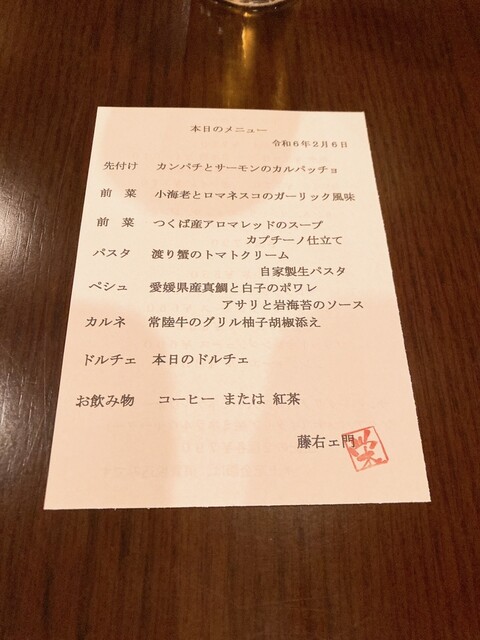 本日のメニュー
令和6年2月6日
先付け カンパチとサーモンのカルパッチョ
前 菜 小海老とロマネスコのガーリック風味
前 菜 つくば産アロマレッドのスープ
カプチーノ仕立て
パスタ 渡り蟹のトマトクリーム
自家製生パスタ
ペシュ 愛媛県産真鯛と白子のポワレ
アサリと岩海苔のソース
カルネ 常陸牛のグリル柚子胡椒添え
ドルチェ 本日のドルチェ
お飲み物 コーヒー または 紅茶
藤右ェ門
栄